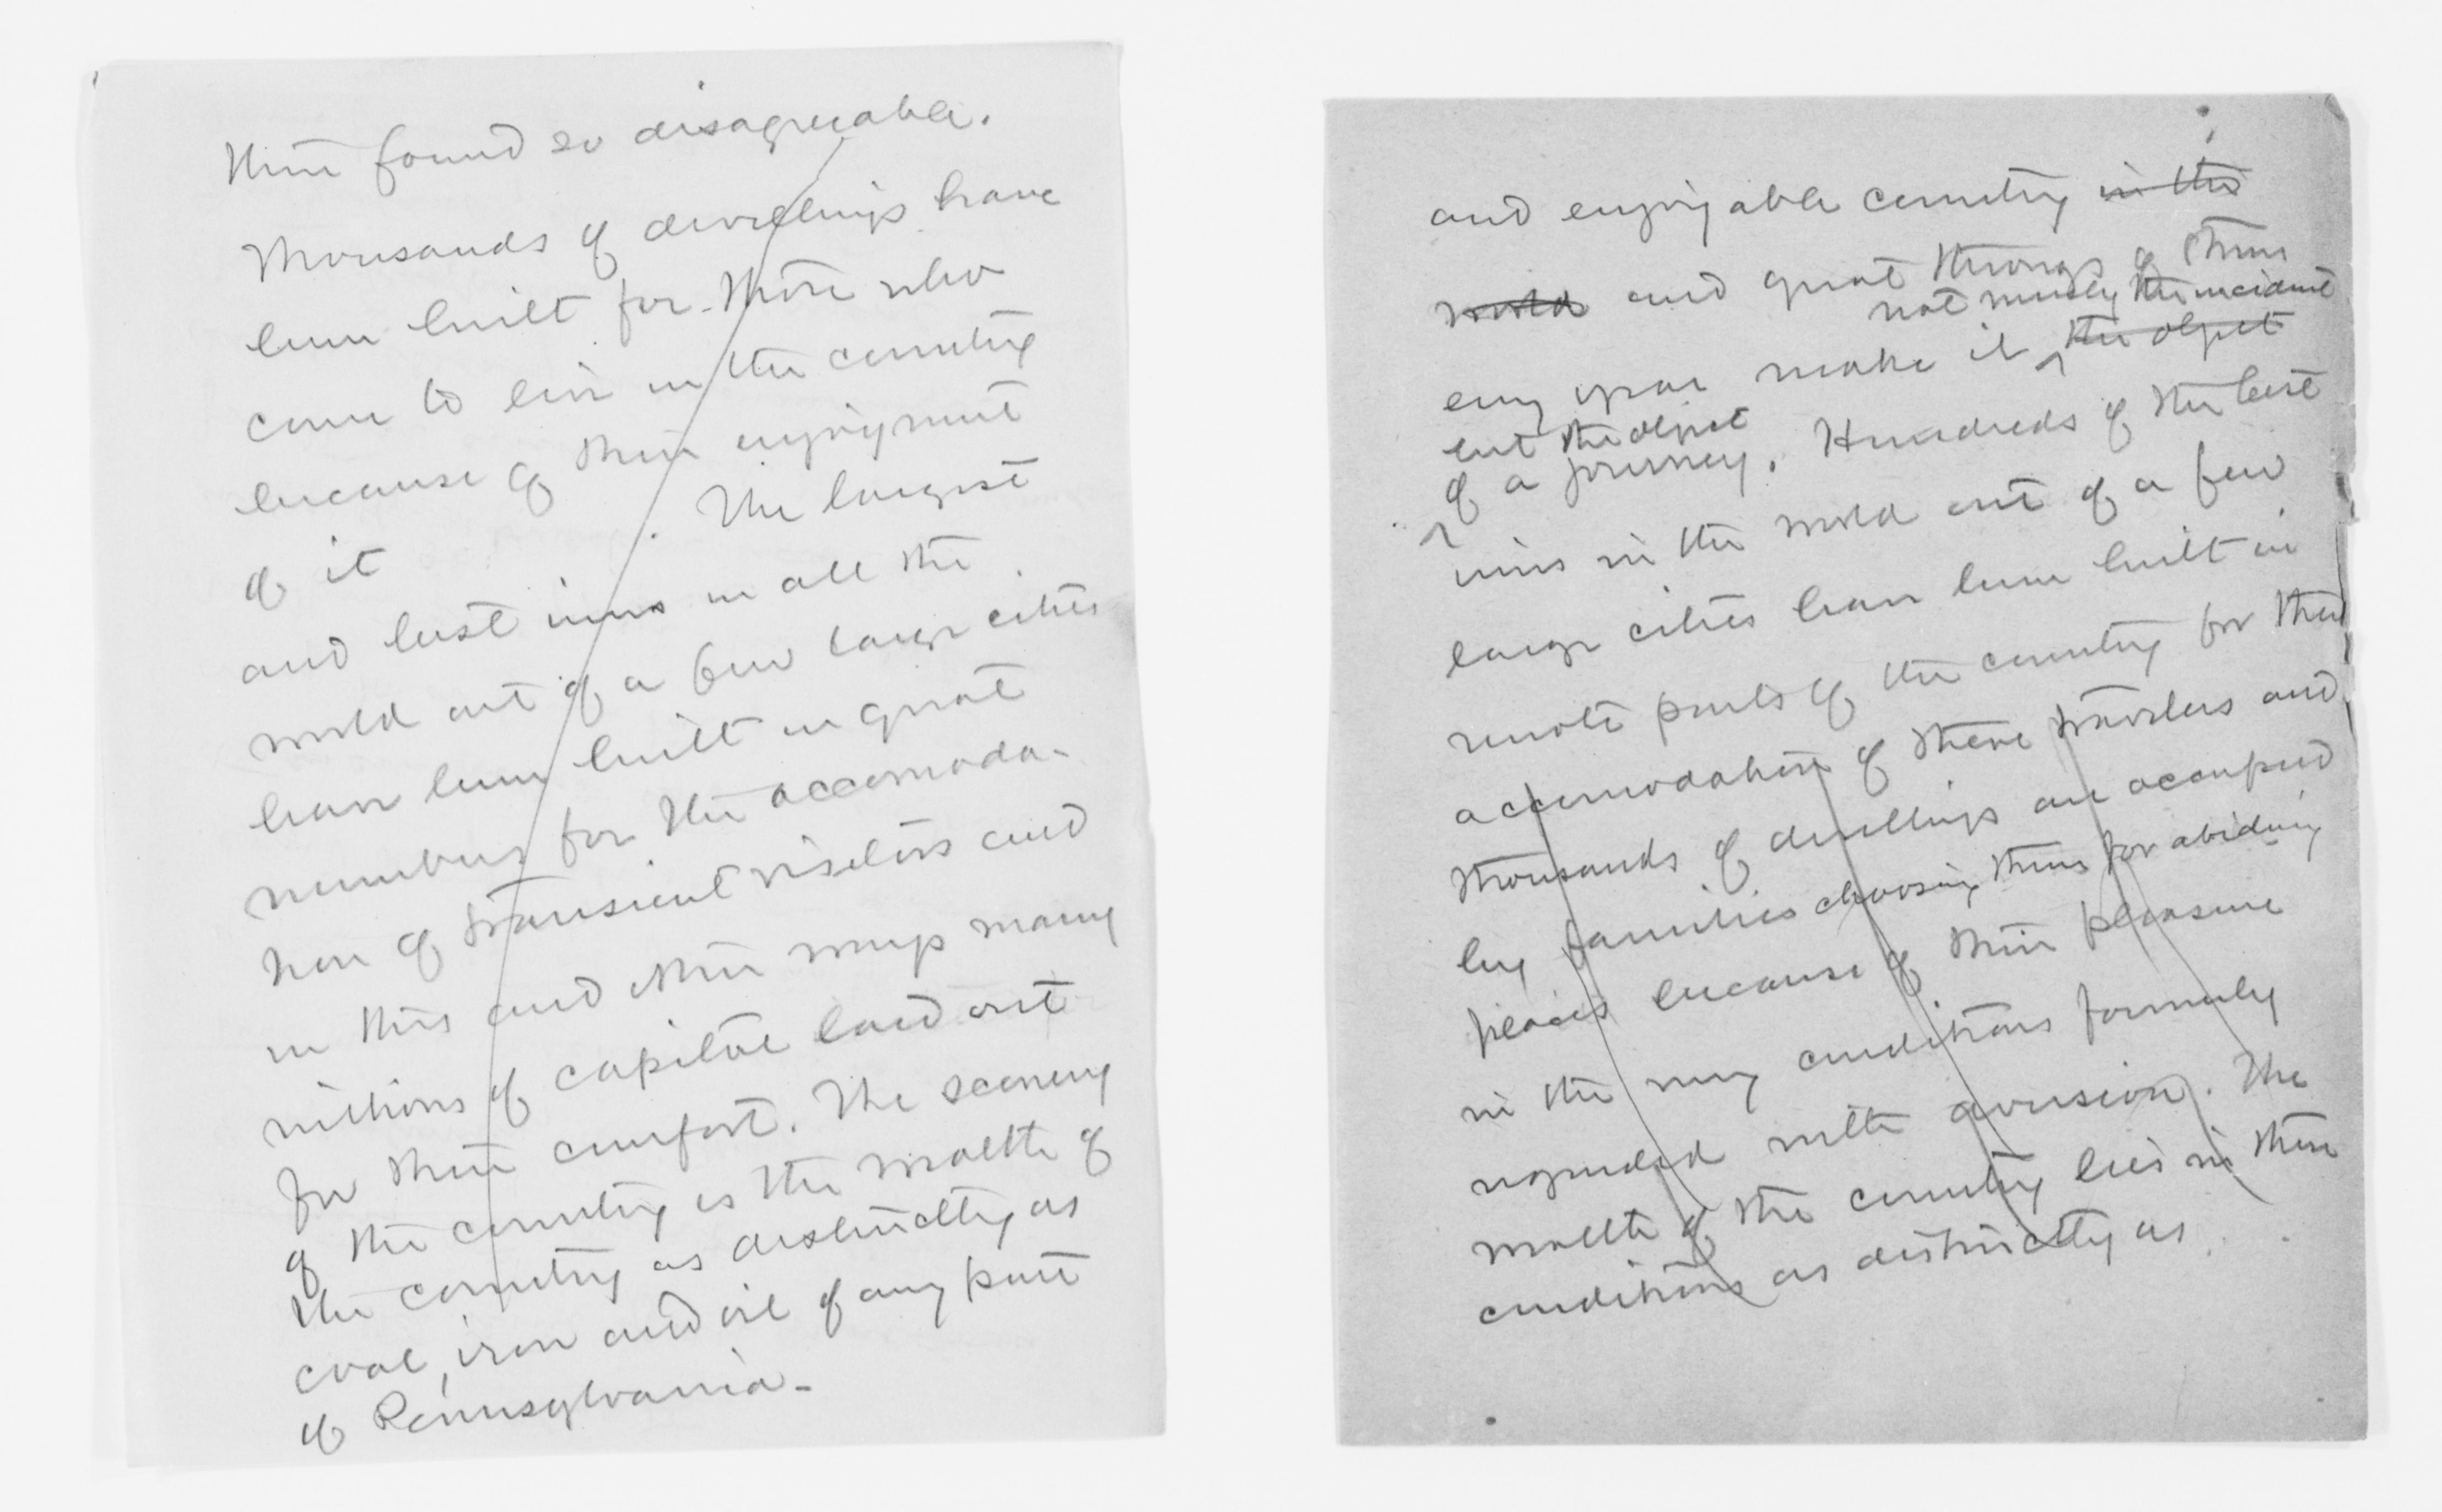 then found so disagreeable.
Thousands of dwellings have
been built for those who
come to live in the country
because of their enjoyment
of it . The largest
and best inns in all the
world out of a few large cities
have been built in great
numbers for the accomoda-
tion of transient visitors and
in this and other ways many
millions of capital laid out
for their comfort. The scenery
of the country is the wealth of
the country as distinctly as
coal, iron and oil of any part
of Pennsylvania-
and enjoyable country in the
world and great throngs of them
not merely the incident
every year make it the object
but the object
of a journey. Hundreds of the best
inns in the world out of a few
large cities have been built in
remote parts of the country for the
accomodation of these travelers and
thousands of dwellings are occupied
by families choosing them for abiding
places because of their pleasure
in the very conditions formerly
regarded with aversion. The
wealth of the country lies in these
conditions as distinctly as